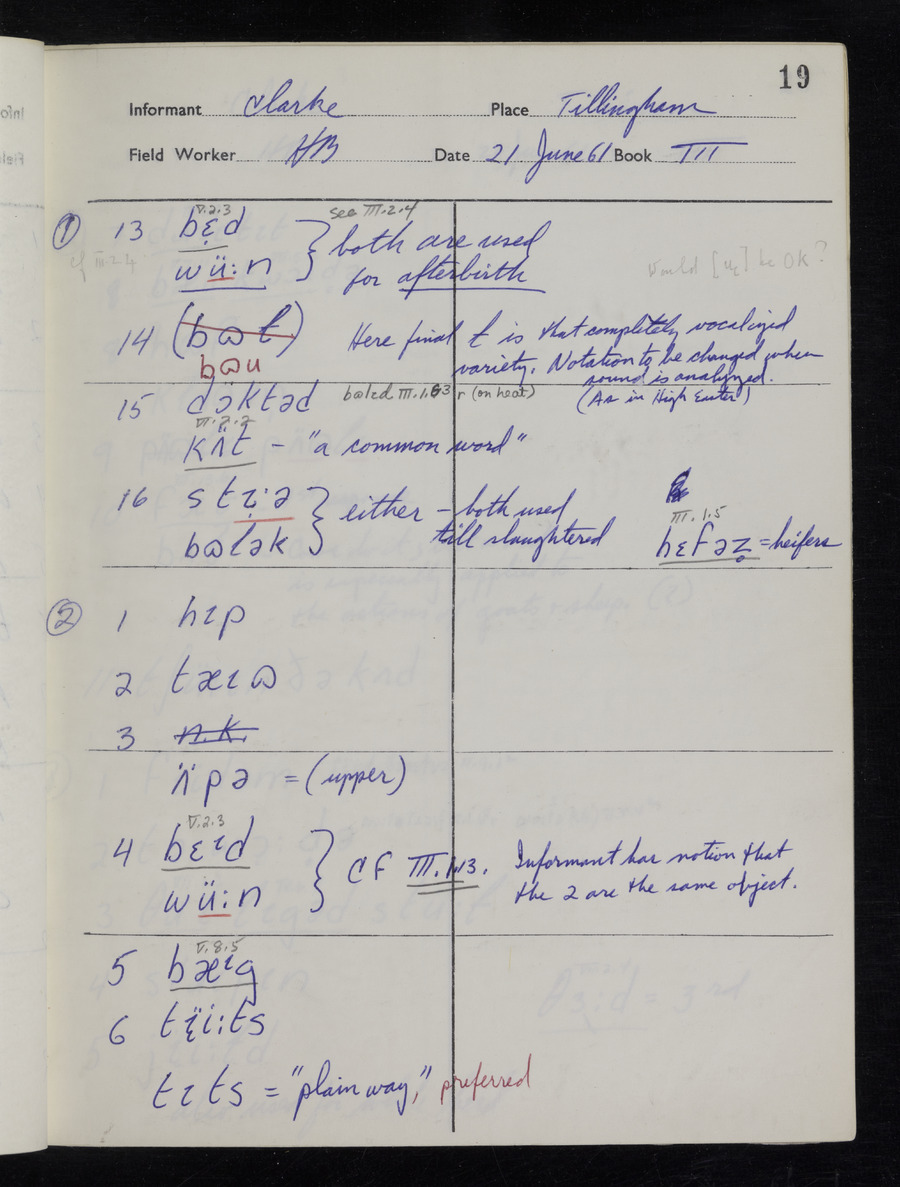 19
Informant Clarke Place Tillingham
Field Worker HB Date 21 June 61 Book III
V.2.3 see III.2.4
① 13 bɛ̣d } both are used
cf III 2 4
wü:n for afterbirth
Would [ ] be OK?
14 (bɷɫ) Here final ɫ is that completely vocalized
bɷu variety. Notation to be changed when
sound is analyzed.
(As in High Easter)
15 dəktəd bɷləd III.1.6 r (on heat)
kʌ̈t – "a common word"
16 stɪ̣·ə } either – both used
bɷlək till slaughtered
III.1.5
hɛfəẓ = heifers
② 1 hɪp
2 tæɪɷ
3 n.k.
ʌ̈pə = (upper)
V.2.3
4 bɛᶦd } CF III.1.13. Informant has notion that
wü:n the 2 are the same object.
V.8.5
5 bæᶦg
6 tï̞i:ts
tɪts = "plain way," preferred